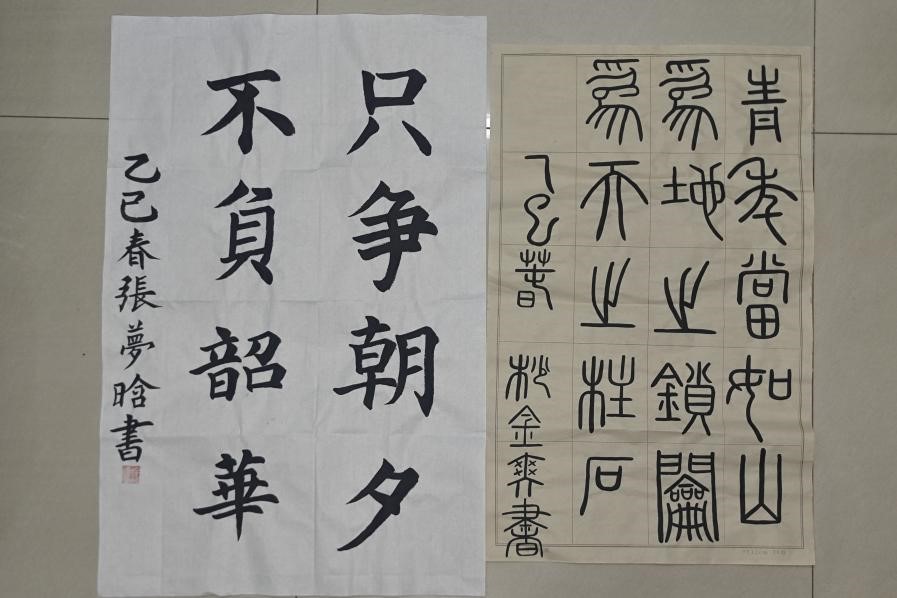 青年當如山
爲地之鎖鑰
爲天之柱石
乙巳春 金爽書
只争朝夕
不負韶華
乙巳春張夢晗書